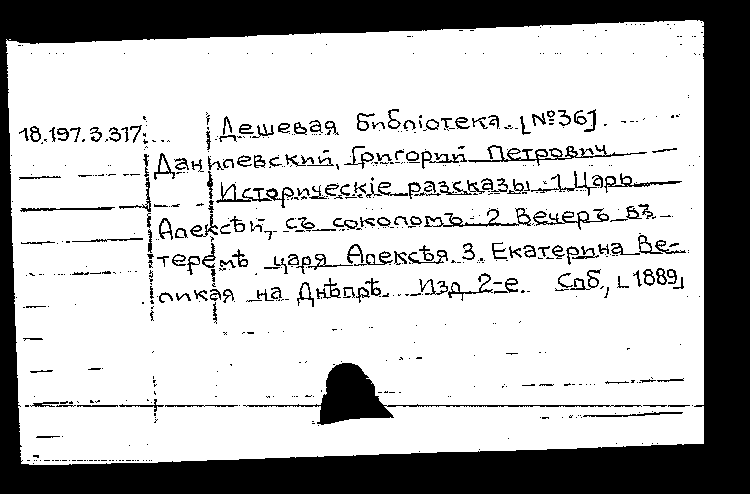 18.197.3.317. Дешевая библіотека. [№36].
Данилевский, Григорий Петрович.
Историческіе разсказы. 1 Царь
Алексѣй, съ соколомъ. 2 Вечеръ въ
теремѣ царя Алексѣя. 3. Екатерина Ве-
ликая на Днѣпрѣ. Изд 2-е. Спб., [1889]